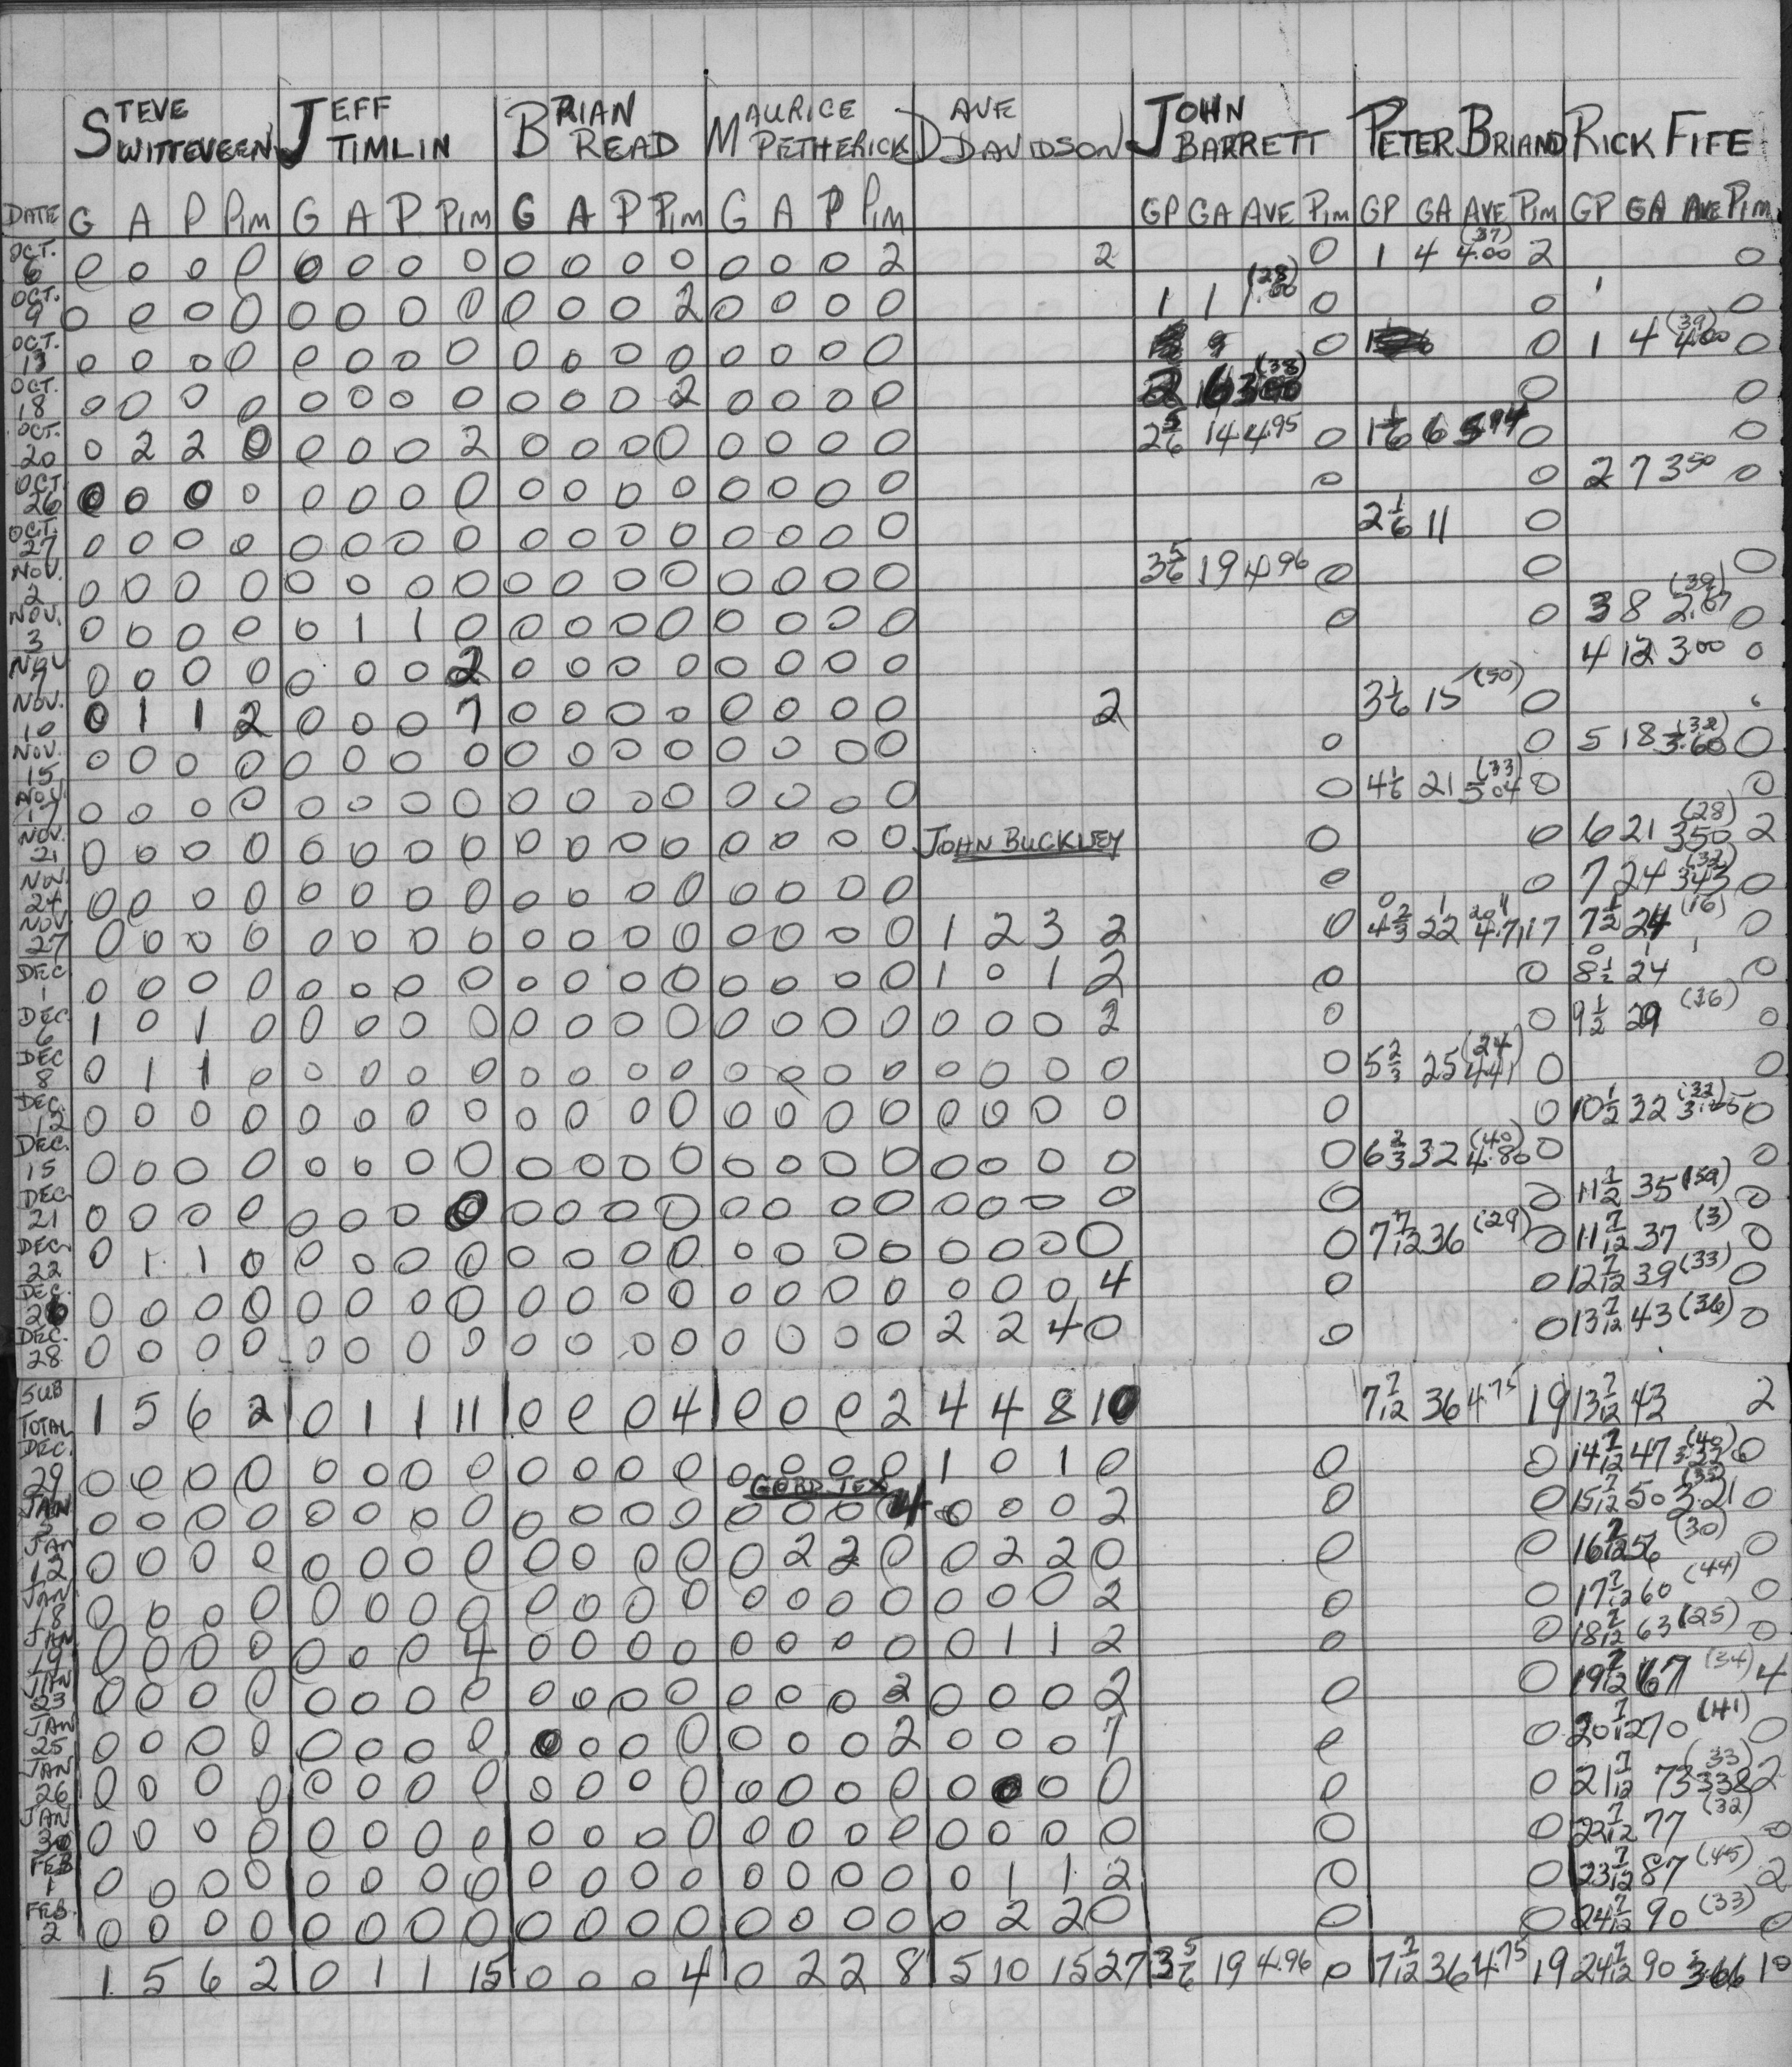 STEVE SWITTEVEEN JEFF TIMLIN BRIAN READ MAURICE PETHERICK DAVE DAVIDSON JOHN BARRETT PETER BRIAND RICK FIFE
DATE G A P PIM G A P PIM G A P PIM G A P PIM GP GA AVE PIM GP GA AVE PIM GP GA AVE PIM
OCT. 6 0 0 0 0 0 0 0 0 0 0 0 0 0 0 0 2 2 0 1 4 4.00 (37) 2 0
OCT. 9 0 0 0 0 0 0 0 0 0 0 0 2 0 0 0 0 1 1 1.00 (28) 0 0 0
OCT. 13 0 0 0 0 0 0 0 0 0 0 0 0 0 0 0 0 0 0 1 4 4.00 (39) 0
OCT. 18 0 0 0 0 0 0 0 0 0 0 0 2 0 0 0 0 2 6 3.00 (38) 0 0
OCT. 20 0 2 2 0 0 0 0 2 0 0 0 0 0 0 0 0 2 5/6 14 4.95 0 1 1/6 6 0 0
OCT. 26 0 0 0 0 0 0 0 0 0 0 0 0 0 0 0 0 0 0 2 7 3.50 0
OCT. 27 0 0 0 0 0 0 0 0 0 0 0 0 0 0 0 0 2 1/6 11 0
NOV. 2 0 0 0 0 0 0 0 0 0 0 0 0 0 0 0 0 3 5/6 19 4.96 0 0 0
NOV. 3 0 0 0 0 0 1 1 0 0 0 0 0 0 0 0 0 0 0 3 8 2.67 (39) 0
NOV 9 0 0 0 0 0 0 0 2 0 0 0 0 0 0 0 0 4 12 3.00 0
NOV. 10 0 1 1 2 0 0 0 7 0 0 0 0 0 0 0 0 2 3 1/6 15 (50) 0
NOV. 15 0 0 0 0 0 0 0 0 0 0 0 0 0 0 0 0 0 0 5 18 3.60 (32) 0
NOV. 17 0 0 0 0 0 0 0 0 0 0 0 0 0 0 0 0 0 4 1/6 21 5.04 (33) 0 0
NOV. 21 0 0 0 0 0 0 0 0 0 0 0 0 0 0 0 0 JOHN BUCKLEY 0 0 6 21 3.50 (28) 2
NOV 24 0 0 0 0 0 0 0 0 0 0 0 0 0 0 0 0 0 0 7 24 3.43 (32) 0
NOV 27 0 0 0 0 0 0 0 0 0 0 0 0 0 0 0 0 1 2 3 2 0 4 2/3 22 4.71 17 7 1/2 24 (16) 0
DEC 1 0 0 0 0 0 0 0 0 0 0 0 0 0 0 0 0 1 0 1 2 0 0 8 1/2 24 0
DEC 6 1 0 1 0 0 0 0 0 0 0 0 0 0 0 0 0 0 0 0 2 0 0 9 1/2 29 (36) 0
DEC 8 0 1 1 0 0 0 0 0 0 0 0 0 0 0 0 0 0 0 0 0 0 5 2/3 25 4.41 (24) 0 0
DEC. 12 0 0 0 0 0 0 0 0 0 0 0 0 0 0 0 0 0 0 0 0 0 0 10 1/2 32 (32) 0
DEC. 15 0 0 0 0 0 0 0 0 0 0 0 0 0 0 0 0 0 0 0 0 0 6 2/3 32 4.80 (40) 0 0
DEC 21 0 0 0 0 0 0 0 0 0 0 0 0 0 0 0 0 0 0 0 0 0 0 11 1/2 35 (59) 0
DEC 22 0 1 1 0 0 0 0 0 0 0 0 0 0 0 0 0 0 0 0 0 0 7 7/12 36 (29) 0 11 7/12 37 (3) 0
DEC. 26 0 0 0 0 0 0 0 0 0 0 0 0 0 0 0 0 0 0 0 4 0 0 12 7/12 39 (33) 0
DEC. 28 0 0 0 0 0 0 0 0 0 0 0 0 0 0 0 0 2 2 4 0 0 0 13 7/12 43 (36) 0
SUB TOTAL 1 5 6 2 0 1 1 11 0 0 0 4 0 0 0 2 4 4 8 10 7 7/12 36 4.75 19 13 7/12 43 2
DEC. 29 0 0 0 0 0 0 0 0 0 0 0 0 0 0 0 0 1 0 1 0 0 0 14 7/12 47 (40) 0
GORD
JAN 0 0 0 0 0 0 0 0 0 0 0 0 0 0 0 4 0 0 0 2 0 0 15 7/12 50 3.21 0
JAN 12 0 0 0 0 0 0 0 0 0 0 0 0 0 2 2 0 0 2 2 0 0 0 16 7/12 56 (30) 0
JAN 18 0 0 0 0 0 0 0 0 0 0 0 0 0 0 0 0 0 0 0 2 0 0 17 7/12 60 (44) 0
JAN 19 0 0 0 0 0 0 0 4 0 0 0 0 0 0 0 0 0 1 1 2 0 0 18 7/12 63 (25) 0
JAN 23 0 0 0 0 0 0 0 0 0 0 0 0 0 0 0 2 0 0 0 2 0 0 19 7/12 67 (34) 4
JAN 25 0 0 0 0 0 0 0 0 0 0 0 0 0 0 0 2 0 0 0 7 0 0 20 7/12 70 (41) 0
JAN 26 0 0 0 0 0 0 0 0 0 0 0 0 0 0 0 0 0 0 0 0 0 0 21 7/12 73 3.38 (33) 2
JAN 30 0 0 0 0 0 0 0 0 0 0 0 0 0 0 0 0 0 0 0 0 0 0 22 7/12 77 (32) 0
FEB 1 0 0 0 0 0 0 0 0 0 0 0 0 0 0 0 0 0 1 1 2 0 0 23 7/12 87 (45) 2
FEB. 2 0 0 0 0 0 0 0 0 0 0 0 0 0 0 0 0 0 2 2 0 0 0 24 7/12 90 (33) 0
1 5 6 2 0 1 1 15 0 0 0 4 0 2 2 8 5 10 15 27 3 5/6 19 4.96 0 7 7/12 36 4.75 19 24 7/12 90 3.66 10